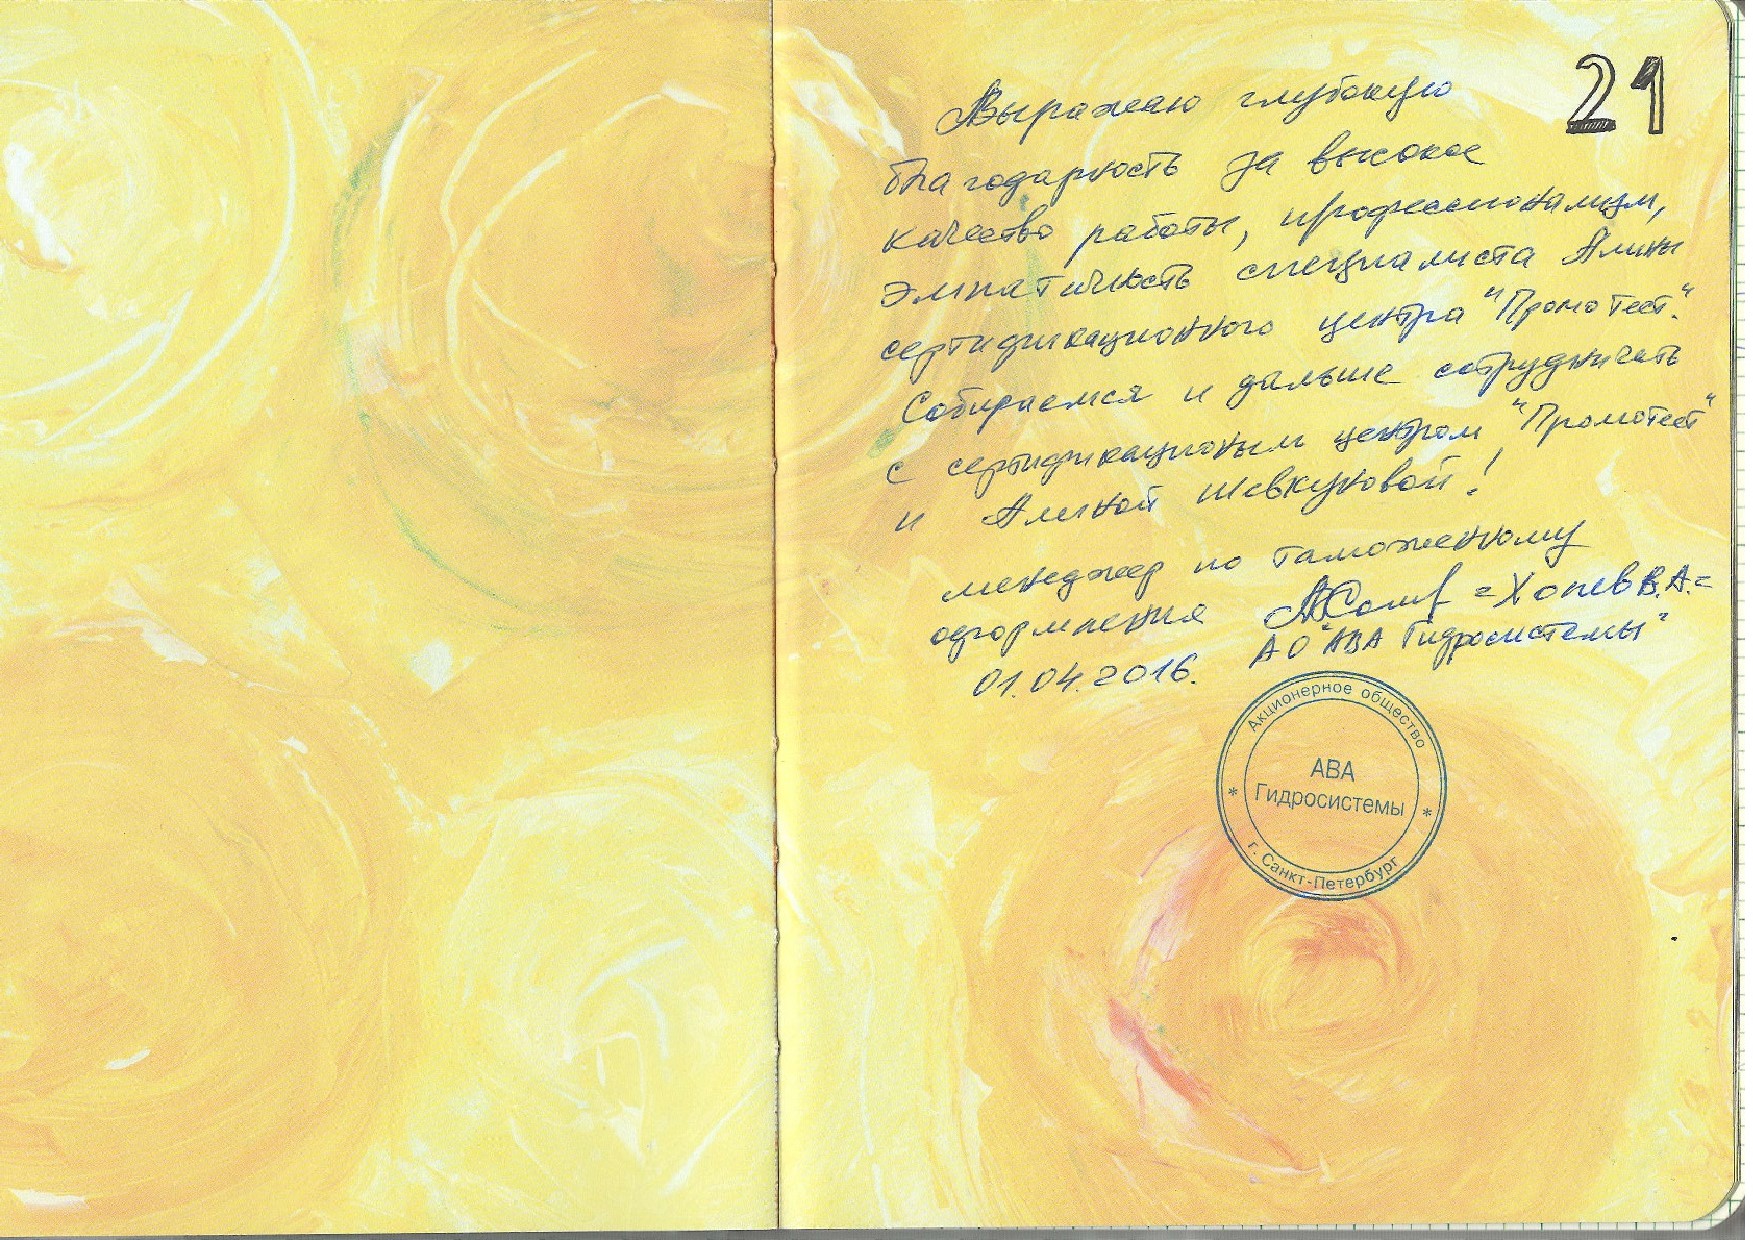 21
Выражаю глубокую
благодарность за высокое
качество работы, профессионализм,
эмпатичность специалиста Алины
сертификационного центра "Промотест".
Собираемся и дальше сотрудничать
с сертификационым центром "Промотест"
и Алиной Шевкуновой!
менеджер по таможенному
оформления =Хопёв В.А.=
01.04.2016. АО "АВА Гидросистемы"
Акционерное общество
АВА
Гидросистемы
* *
г. Санкт-Петербург